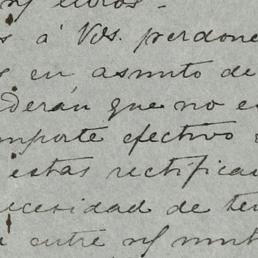 s á Vds. perdone
s en asunto de
derán que no e
mporte efectivo
estas rectifica
ecesidad de te
entre n/ mut